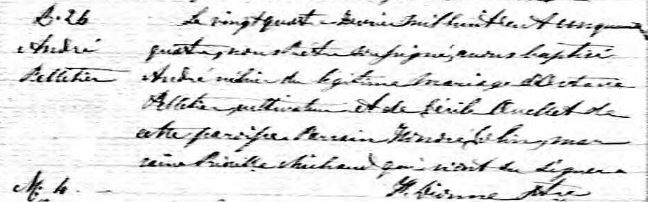 B. 26
André
Pelletier
Le vingt quatre Février mil huit cent cinquante
quatre, nous Prêtre soussigné, avons baptisé
André né hier du légitime mariage d'Octave
Pelletier, cultivateur et de Cécile Ouellet de
cette paroisse Parrain André mar
raine Priscille Michaud qui n'ont su signer
H. Dionne Ptre
M. 4.